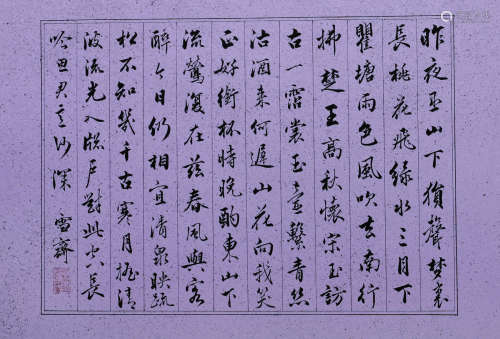 昨夜巫山下猿聲夢裏
長桃花飛綠水三月下
瞿塘雨色風吹去南行
拂楚王高秋懷宋玉訪
古一霑裳玉壺繫青絲
沽酒來何遲山花向我笑
正好銜杯時晚酌東山下
流鶯復在茲春風與客
醉今日仍相宜清泉映疏
松不知幾千古寒月搖清
波流光入牕戶對此空長
吟思君意何深 雪齋